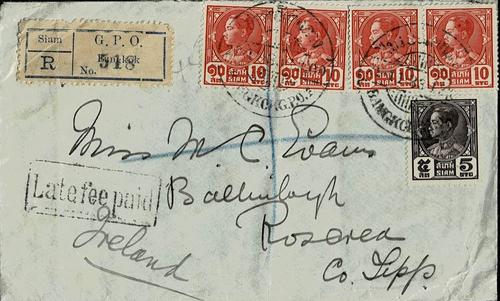 Siam
G. P. O.
R
Bangkok
No. 318
๑๐ สยาม 10
SIAM
๑๐ สยาม 10
SIAM
๑๐ สยาม 10
SIAM
๑๐ สยาม 10
SIAM
BANGKOK G.P.O.
BANGKOK
๕ สยาม 5
SIAM
Miss M. C. Evans
Late fee paid
Roscrea
Ireland
Co. Tipp.